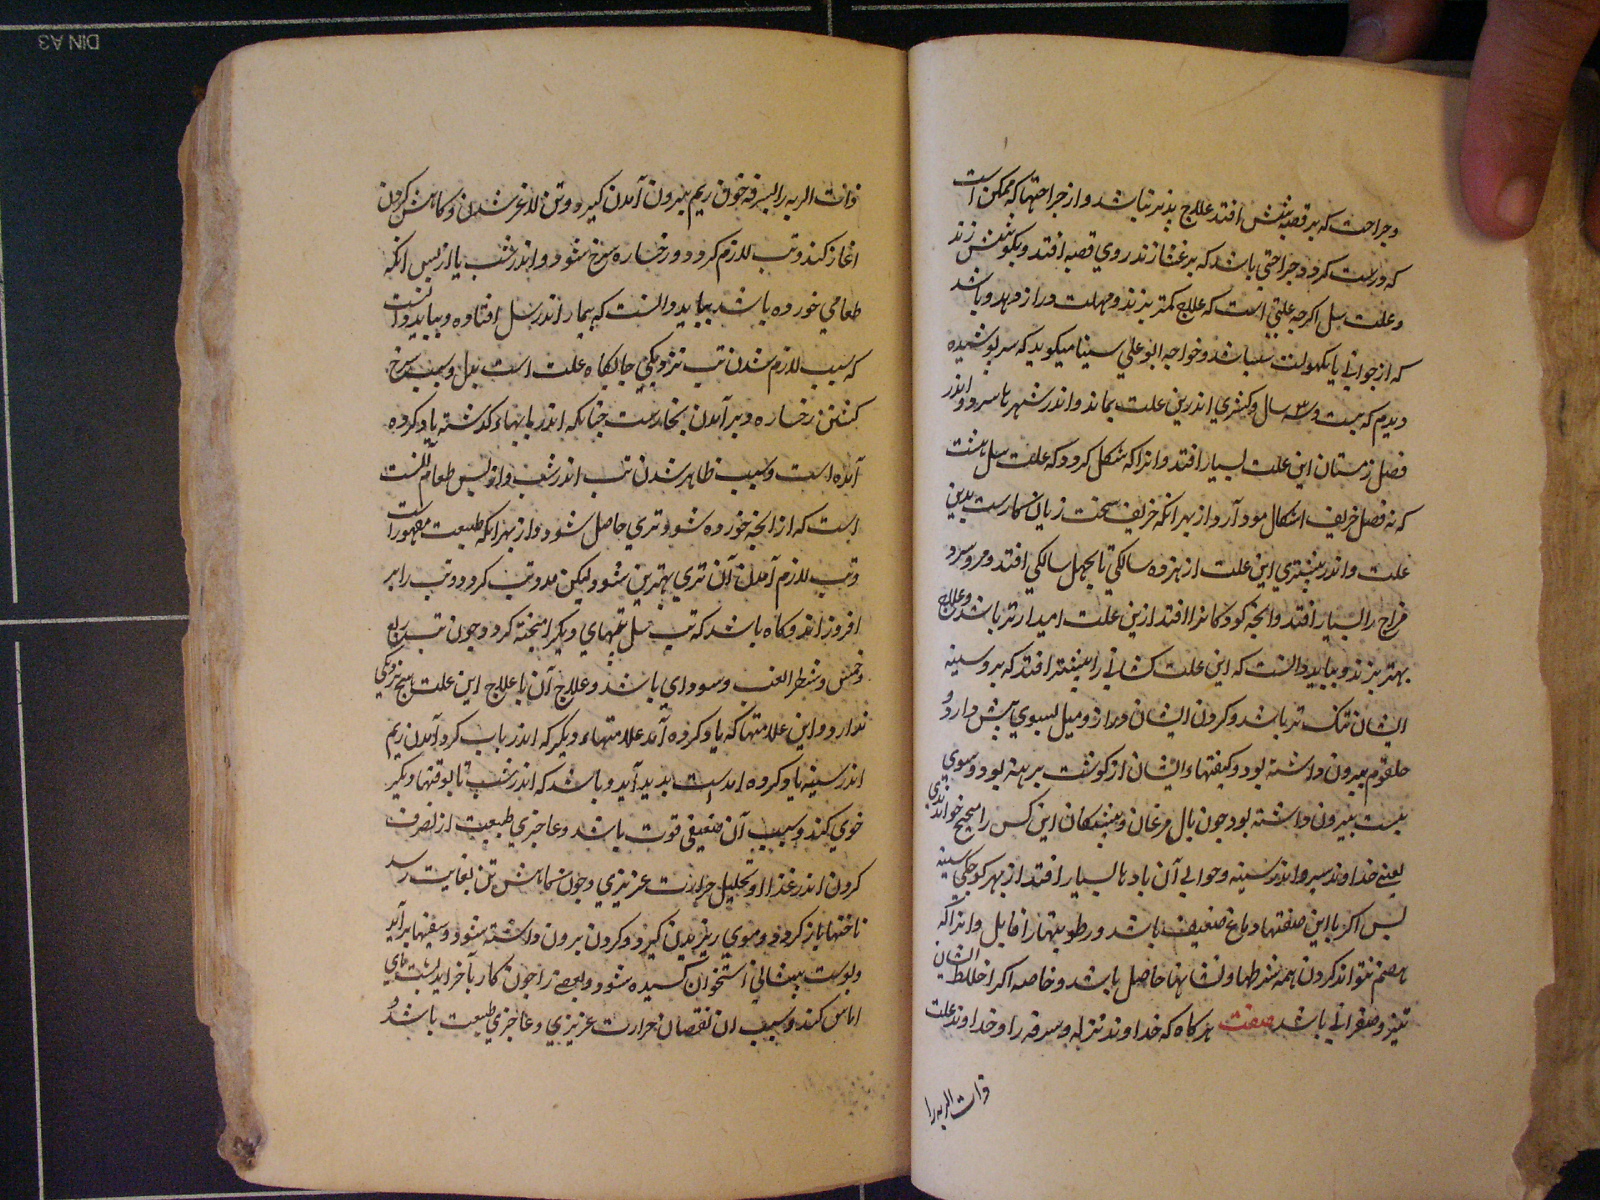 وجراحت که بر قصبه شش افتد علاج پذیر نباشد و از جراحتها که ممکن است
که درست کردد جراحتی باشد که بر غشا زند روی قصبه افتد و بکوشش زند
و علت سل اکرچه علتی است که علاج کمتر پزند و مهلت دراز دهد و باشد
که از جوانی یا بکهولت بباشد و خواجه ابو علی سینا میکوید که سر پوشیده
دیدم که بیست و سه سال و کسری اندرین علت بماند و اندر شهرها سرد و اندر
فصل زمستان این علت بسیار افتد و انرا که مشکل کردد که علت سل هست
که نه فصل خریف اشکال مود آرد از بهر انکه خریف سخت زیان کارست بدین
علت و اندر بیشتری این علت از هژده سالکی تا بچهل سالکی افتد و مر و سرد
مزاج را بسیار افتد و انچه کودکانرا افتد ازین علت امیدارتر باشد و علاج
بهتر پزند و بباید دانست که این علت کسانی را بیشتر افتد که بر و سینه
ایشان تنک تر باشد و کردن ایشان دراز و میل بسوی پیش دارد و
حلقوم بیرون داشته بود و کتفتهاء ایشان از کوشت برهنه بود و سوی
پشت بیرون داشته بود چون بال مرغان و پیشکان این کس را مجنح خوانند
یعنی خداوند پر و اندر سینه و حوالی آن بادها بسیار افتد از بهر کوچکی سینه
پس اکر با این صفتها دماغ ضعیف باشد و رطوبتها را قابل و انرا که
هضم نتواند کردن همه شرطها و نشانها حاصل باشد و خاصه اکر اخلاط ایشان
تیز و صفرائی باشد صفت هرکاه که خداوند نزله و سرفه را و خداوند علت
ذات الریه را
ذات الریه را بسرفه خون ریم بیرون آمدن کیرد و تن لاغر شدن و کاهش کردن
اغاز کند و تب لازم کردد و رخساره سرخ شود و اندر شب یا از پس انکه
طعامی خورده باشد بباید دانست که بیمار اندر سل افتاده و بباید دانست
که سبب لازم شدن تب نزدیکی جایکاه علت است بدل و سبب سرخ
کشتن رخساره و بر آمدن بخارست چنانکه اندر بابهاء کذشته یاد کرده
آمده است و سبب ظاهر شدن تب اندر شب و از پس طعام آنست
است که از انچه خورده شود تری حاصل شود و از بهر انکه طبیعت مقهور است
و تب لازم آمدن آن تری بهترین شود لیکن مدد تب کردد و تب را بر
افروزاند و کاه باشد که تب سل بتبهای دیکر امیخته کردد چون تب ربع
و خمس و شطر الغب و سودای باشد و علاج آن با علاج این علت هیچ نزدیکی
ندارد و این علامتها که یاد کرده آمد علامتهاء دیکر که اندر باب کرد آمدن ریم
اندر سینه یاد کرده امدست پدید آید و باشد که اندر شب تا بوقتها دیکر
خوی کند و سبب آن ضعیفی قوت باشد و عاجزی طبیعت از تصرف
کردن اندر غذا و تحلیل حرارت عزیزی و چون کاهش تن بغایت رسد
ناخنها باز کردد و موی ریزیدن کیرد و کردن برون داشته شود و سقیفها بر آید
و پوست پیشانی استخوان کسیده شود و بعضی را چون کار بآخر اید پشت پای
اماس کند و سبب ان نقصان حرارت عزیزی و عاجزی طبیعت باشد و
DIN A3